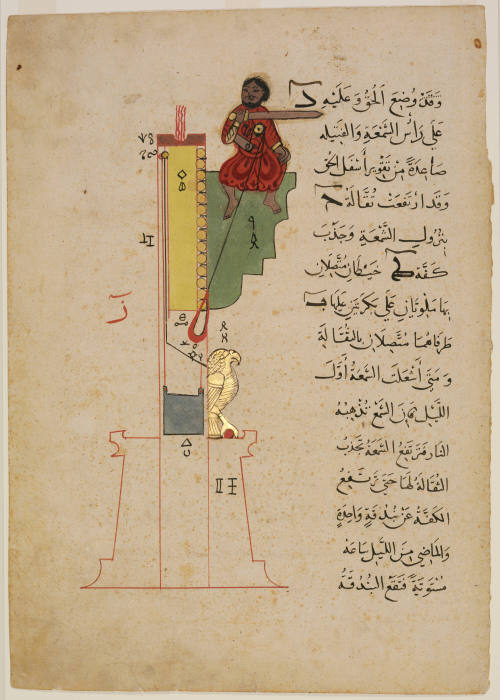 وَقَدْ وُضِعَ الحُقُّ وَعَلَيْهِ
عَلَى رَأْسِ الشَّمْعَةِ وَالفَتِيلَة
صَاعِدَةً مِنْ تَقْوِيرِ أَسْفَلِ الحُقِّ
وَقَدِ ارْتَفَعَتْ ثَقَّالَةُ
بِنُزُولِ الشَّمْعَةِ وَجَذْبِ
كَفَّةِ خَيْطَانِ مُتَّصِلَانِ
بِهَا مَلْوِيَّانِ عَلَى بَكْرَتَيْنِ عَلَيْهَا
طَرَفَاهُمَا مُتَّصِلَانِ بِالثَّقَّالَةِ
وَمَتَى أُشْعِلَتِ الشَّمْعَةُ أَوَّلَ
اللَّيْلِ فَإِنَّ الشَّمْعَ تُذْهِبُهُ
النَّار فَتَرْتَفِعُ الشَّمْعَةُ بِجَذْبِ
الثَّقَّالَةِ لَهَا حَتَّى تَرْتَفِعَ
الكَفَّةُ عَنْ بُنْدُقَةٍ وَاحِدَةٍ
وَالمَاضِي مِنَ اللَّيْلِ سَاعَة
مُسْتَوِيَةٌ فَتَقَعُ البُنْدُقَةُ